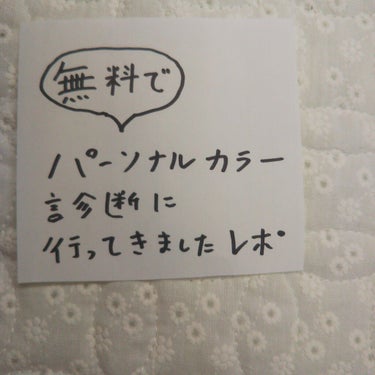 無料で
パーソナルカラー
診断に
行ってきましたレポ